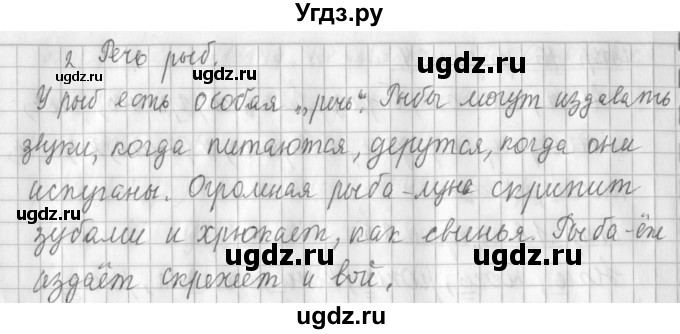 Угдз.ру
2 Речь рыб.
ugdz.ru
ugdz.ru
ugdz.ru
У рыб есть особая „речь“. Рыбы могут издавать
звуки, когда питаются, дерутся, когда они
испуганы. Огромная рыба-луна скрипит
ugdz.ru
ugdz.ru
ugdz.ru
зубами и хрюкает, как свинья. Рыба-ёж
издаёт скрежет и вой.
ugdz.ru
Угдз.ру